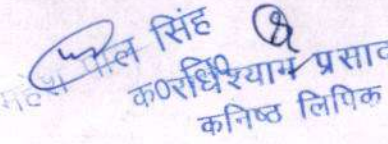 महेश पाल सिंह
क०
राधेश्याम प्रसाद
कनिष्ठ लिपिक